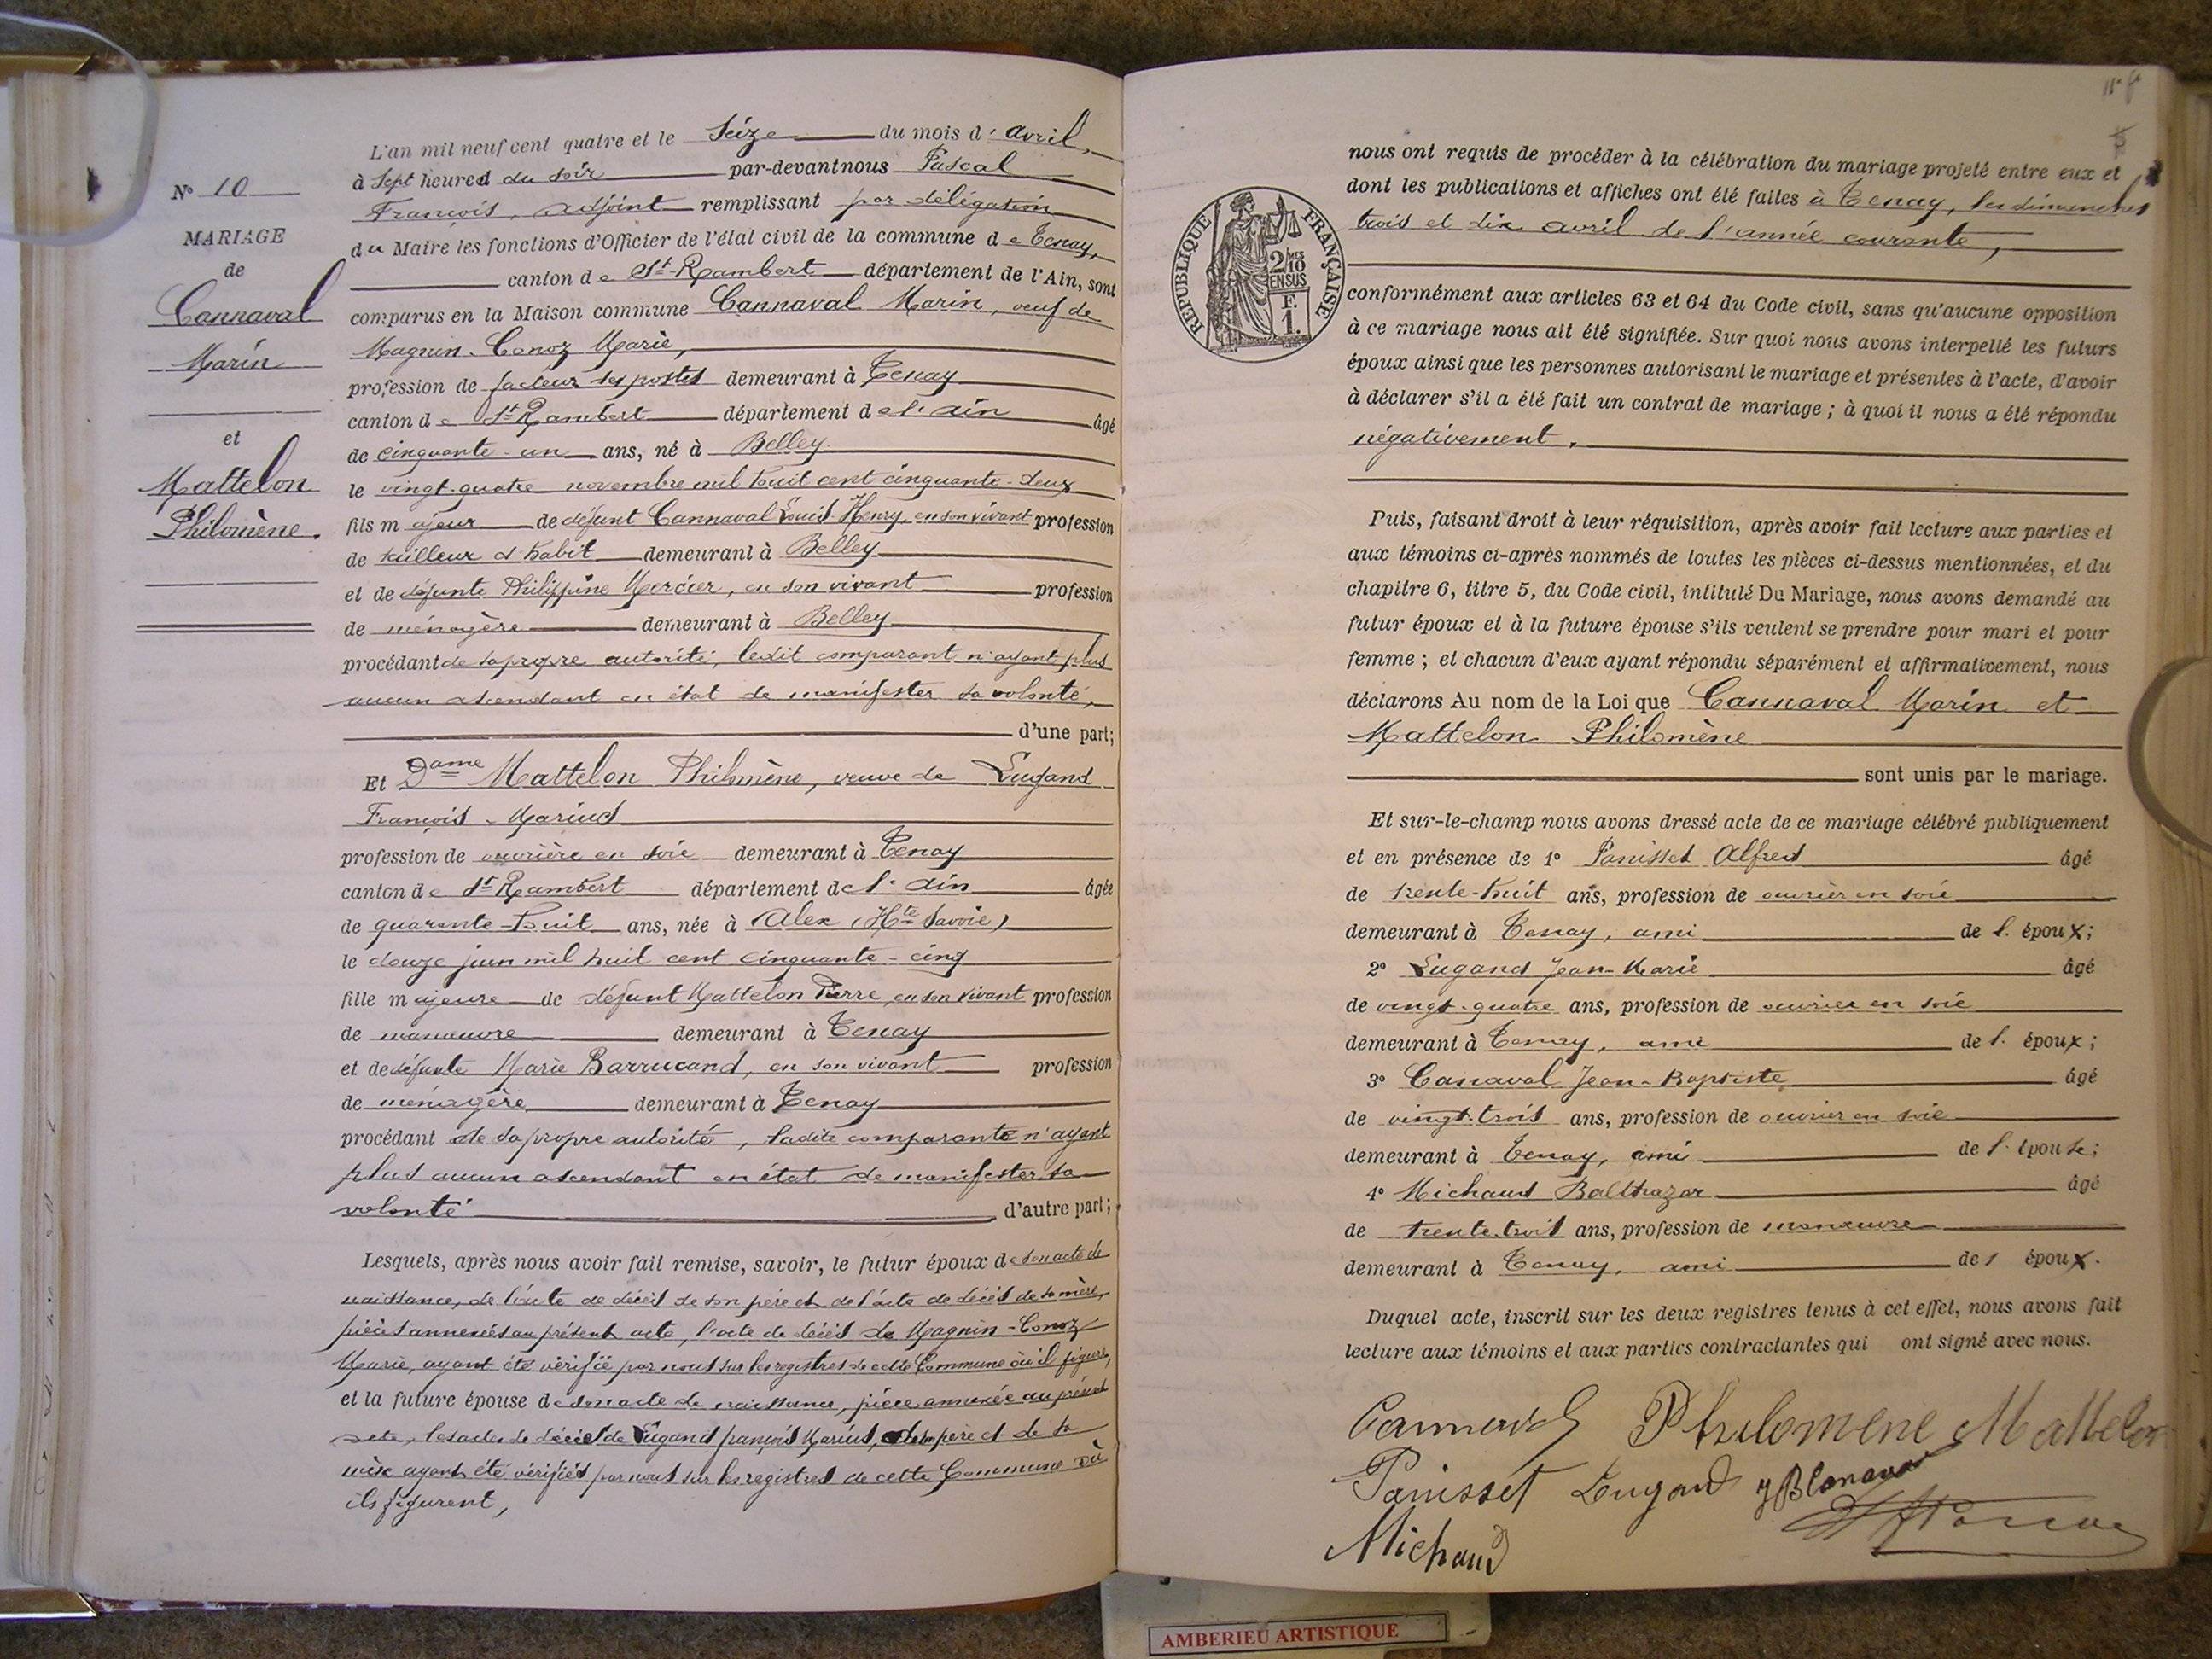 N° 10
MARIAGE
de
Cannaval
Marin
et
Mattelon
Philomène.
L'an mil neuf cent quatre et le Seize du mois d'avril,
à Sept heures du soir par-devant nous Pascal
François, adjoint remplissant par délégation
du Maire les fonctions d'Officier de l'état civil de la commune de Tenay,
canton de St-Rambert département de l'Ain, sont
comparus en la Maison commune Cannaval Marin, veuf de
Magnin-Conoz Marie,
profession de facteur des postes demeurant à Tenay
canton de St Rambert département de l'ain âgé
de cinquante-un ans, né à Belley
le vingt-quatre novembre mil huit cent cinquante-deux
fils majeur de défunt Cannaval Louis-Henry, en son vivant profession
de tailleur d'habit demeurant à Belley
et de défunte Philippine Mercier, en son vivant profession
de ménagère demeurant à Belley
procédant de sa propre autorité, ledit comparant n'ayant plus
aucun ascendant en état de manifester sa volonté,
d'une part;
Et Dame Mattelon Philomène, veuve de Lugand
François-Marius
profession de ouvrière en soie demeurant à Tenay
canton de St Rambert département de l'ain âgée
de quarante-huit ans, née à Alex (Hte Savoie)
le douze juin mil huit cent cinquante-cinq
fille majeure de défunt Mattelon Pierre, en son vivant profession
de manœuvre demeurant à Tenay
et de défunte Marie Barrucand, en son vivant profession
de ménagère demeurant à Tenay
procédant de sa propre autorité, ladite comparante n'ayant
plus aucun ascendant en état de manifester sa
volonté d'autre part;
Lesquels, après nous avoir fait remise, savoir, le futur époux de son acte de
naissance, de l'acte de décès de son père et de l'acte de décès de sa mère,
pièces annexées au présent acte, l'acte de décès de Magnin-Conoz
Marie, ayant été vérifié par nous sur les registres de cette Commune où il figure,
et la future épouse de son acte de naissance, pièce annexée au présent
acte, les actes de décès de Lugand françois Marius, de son père et de sa
mère ayant été vérifiés par nous sur les registres de cette Commune où
ils figurent,
nous ont requis de procéder à la célébration du mariage projeté entre eux et
dont les publications et affiches ont été faites à Tenay, les dimanches
trois et dix avril de l'année courante,
RÉPUBLIQUE FRANÇAISE
2/10 MES
EN SUS
F.
1.
conformément aux articles 63 et 64 du Code civil, sans qu'aucune opposition
à ce mariage nous ait été signifiée. Sur quoi nous avons interpellé les futurs
époux ainsi que les personnes autorisant le mariage et présentes à l'acte, d'avoir
à déclarer s'il a été fait un contrat de mariage; à quoi il nous a été répondu
négativement.
Puis, faisant droit à leur réquisition, après avoir fait lecture aux parties et
aux témoins ci-après nommés de toutes les pièces ci-dessus mentionnées, et du
chapitre 6, titre 5, du Code civil, intitulé Du Mariage, nous avons demandé au
futur époux et à la future épouse s'ils veulent se prendre pour mari et pour
femme; et chacun d'eux ayant répondu séparément et affirmativement, nous
déclarons Au nom de la Loi que Cannaval Marin et
Mattelon Philomène
sont unis par le mariage.
Et sur-le-champ nous avons dressé acte de ce mariage célébré publiquement
et en présence de 1° Panisset Alfred âgé
de trente-huit ans, profession de ouvrier en soie
demeurant à Tenay, ami de l'époux;
2° Lugand Jean-Marie âgé
de vingt-quatre ans, profession de ouvrier en soie
demeurant à Tenay, ami de l'époux;
3° Canaval Jean-Baptiste âgé
de vingt-trois ans, profession de ouvrier en soie
demeurant à Tenay, ami de l'épouse;
4° Michaud Balthazar âgé
de trente-trois ans, profession de manœuvre
demeurant à Tenay, ami de l époux.
Duquel acte, inscrit sur les deux registres tenus à cet effet, nous avons fait
lecture aux témoins et aux parties contractantes qui ont signé avec nous.
Cannaval Philomène Mattelon
Panisset Lugand JBCanaval
Michaud
AMBERIEU ARTISTIQUE